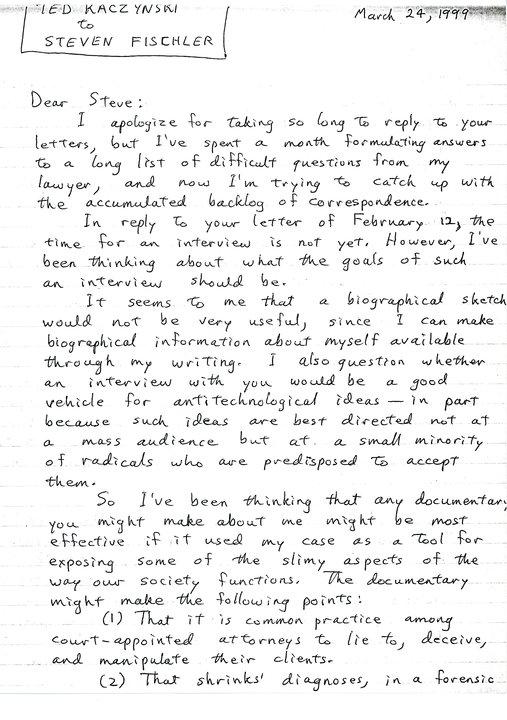 TED KACZYNSKI
to
STEVEN FISCHLER
March 24, 1999
Dear Steve:
I apologize for taking so long to reply to your
letters, but I've spent a month formulating answers
to a long list of difficult questions from my
lawyer, and now I'm trying to catch up with
the accumulated backlog of correspondence.
In reply to your letter of February 12, the
time for an interview is not yet. However, I've
been thinking about what the goals of such
an interview should be.
It seems to me that a biographical sketch
would not be very useful, since I can make
biographical information about myself available
through my writing. I also question whether
an interview with you would be a good
vehicle for antitechnological ideas — in part
because such ideas are best directed not at
a mass audience but at a small minority
of radicals who are predisposed to accept
them.
So I've been thinking that any documentary
you might make about me might be most
effective if it used my case as a tool for
exposing some of the slimy aspects of the
way our society functions. The documentary
might make the following points:
(1) That it is common practice among
court-appointed attorneys to lie to, deceive,
and manipulate their clients.
(2) That shrinks' diagnoses, in a forensic